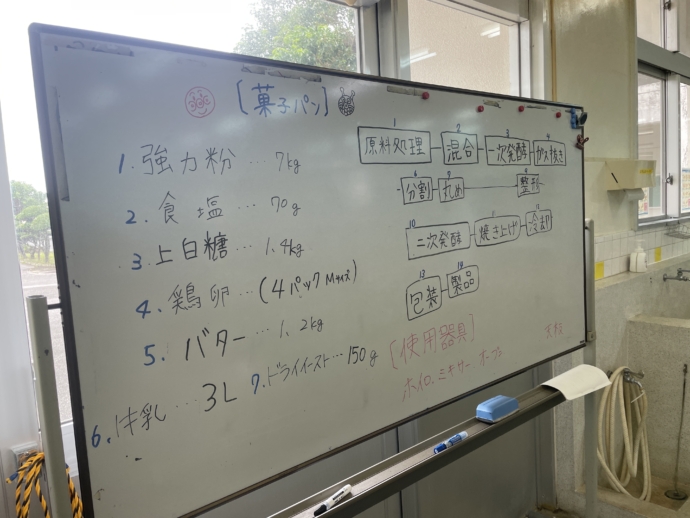 [菓子パン]
1. 強力粉 … 7kg
2. 食塩 … 70g
3 上白糖 … 1.4kg
4. 鶏卵 …(4パック Mサイズ)
5. バター … 1.2kg
6. 牛乳 … 3L
7. ドライイースト … 150g
1 原料処理 2 混合 3 一次発酵 4 ガス抜き
6 分割 9 整形
10 二次発酵 焼き上げ 冷却
13 包装 14 製品
[使用器具]
ホイロ、ミキサー